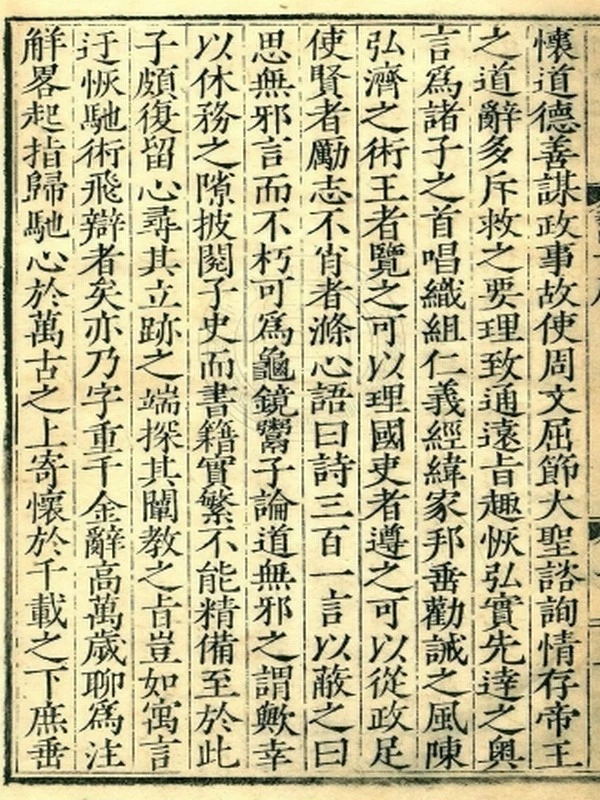 懷道德善謀政事故使周文屈節大聖諮詢情存帝王
之道辭多斥救之要理致通遠旨趣恢弘實先達之奧
言爲諸子之首唱織組仁義經緯家邦垂勸誡之風陳
弘濟之術王者覽之可以理國吏者遵之可以從政足
使賢者勵志不肖者滌心語曰詩三百一言以蔽之曰
思無邪言而不朽可爲龜鏡鬻子論道無邪之謂歟幸
以休務之隙披閱子史而書籍實繁不能精備至於此
子頗復留心尋其立跡之端探其闡教之旨豈如寓言
迂恢馳術飛辯者矣亦乃字重千金辭高萬歲聊爲注
觧畧起指歸馳心於萬古之上寄懷於千載之下庶垂